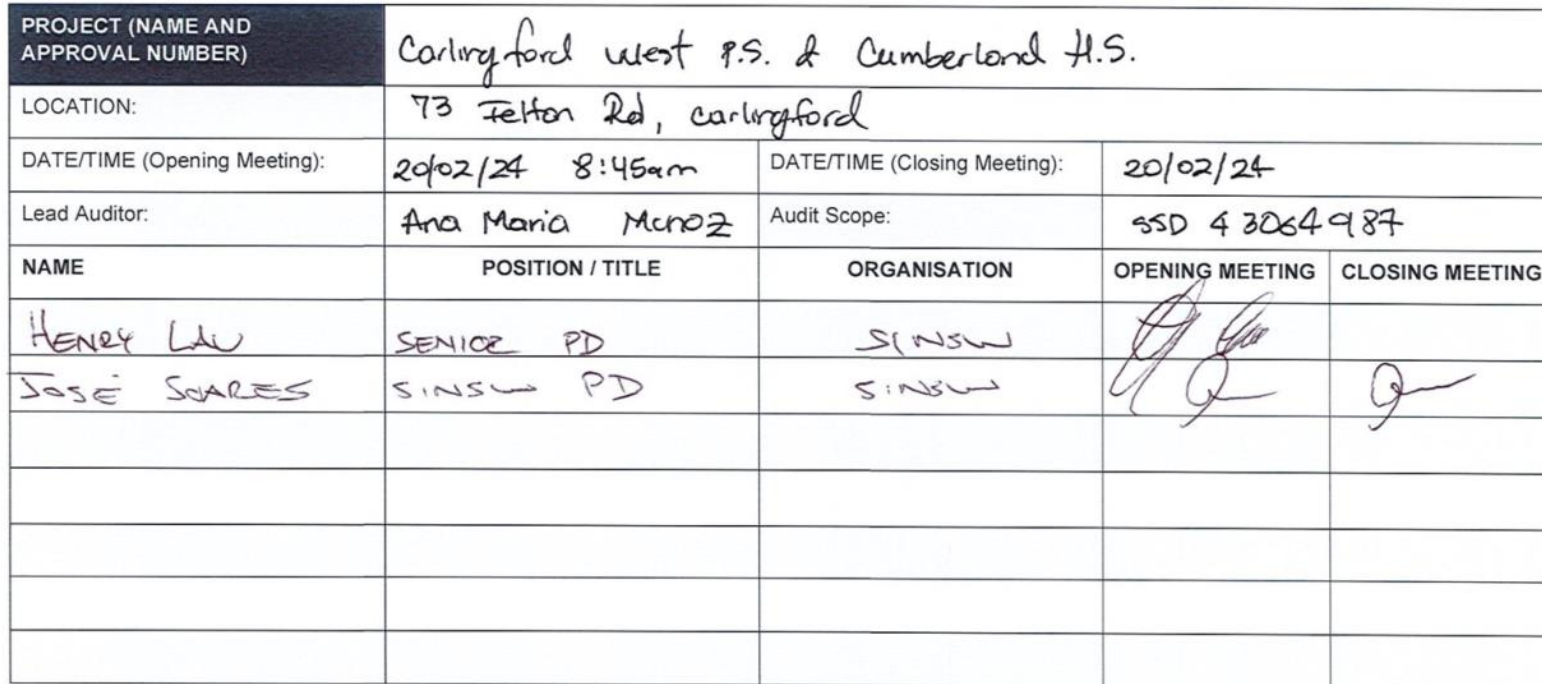 PROJECT (NAME AND
APPROVAL NUMBER)
Carlingford West P.S. & Cumberland H.S.
LOCATION:
73 Felton Rd, Carlingford
DATE/TIME (Opening Meeting):
20/02/24 8:45am
DATE/TIME (Closing Meeting):
20/02/24
Lead Auditor:
Ana Maria Munoz
Audit Scope:
SSD 43064987
NAME
POSITION / TITLE
ORGANISATION
OPENING MEETING
CLOSING MEETING
HENRY LAU
SENIOR PD
SINSW
JOSÉ SOARES
SINSW PD
SINSW